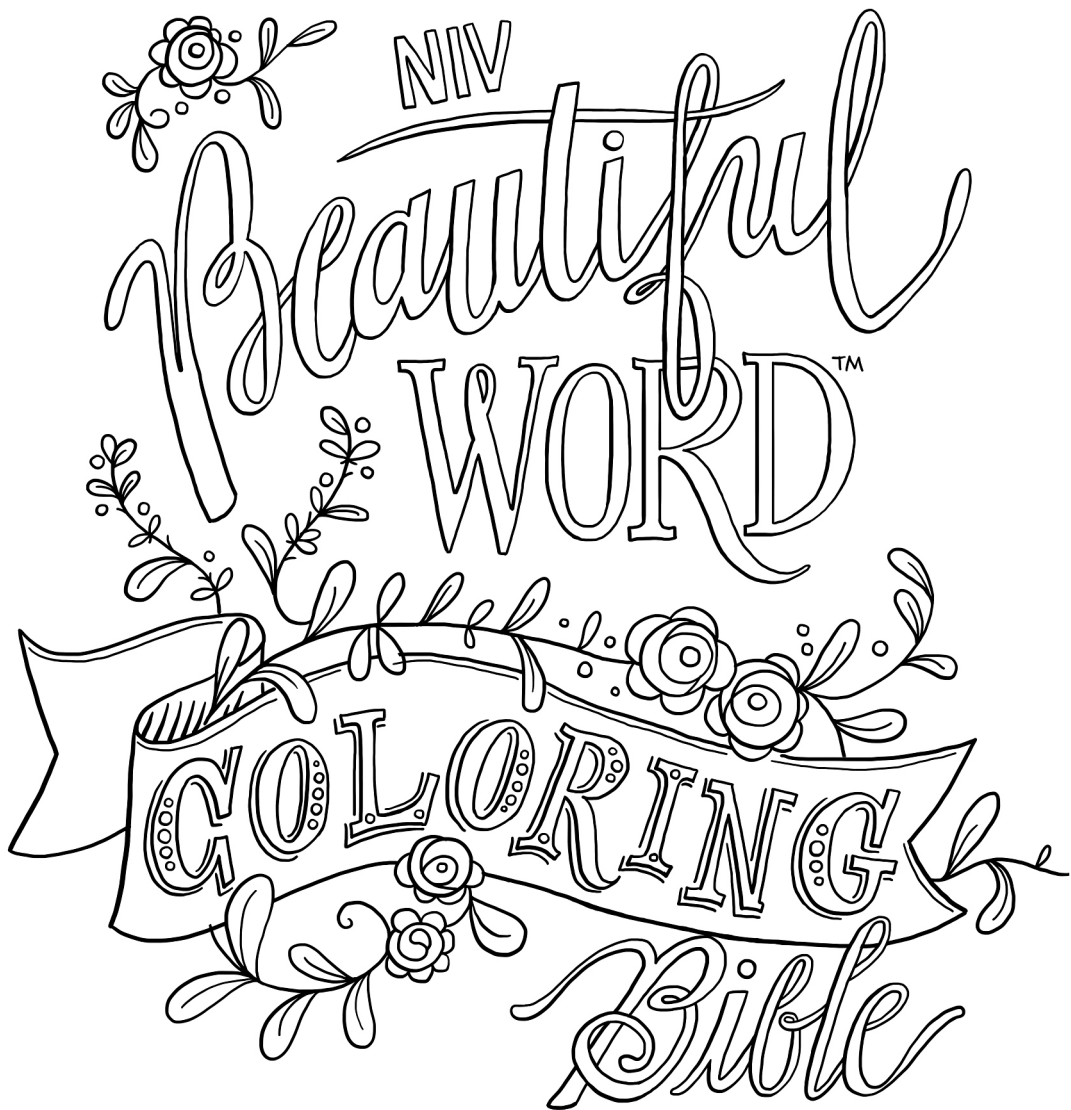 NIV
Beautiful
WORD™
COLORING
Bible